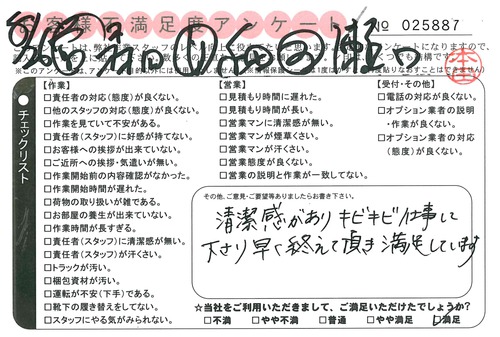 お客様不満足度アンケート
№ 025887
チェックリスト
【作業】
□責任者の対応(態度)が良くない。
□他のスタッフの対応(態度)が良くない。
□作業を見ていて不安がある。
□責任者(スタッフ)に好感が持てない。
□お客様への挨拶が出来ていない。
□ご近所への挨拶・気遣いが無い。
□作業開始前の内容確認がなかった。
□作業開始時間が遅れた。
□荷物の取り扱いが雑である。
□お部屋の養生が出来ていない。
□作業時間が長すぎる。
□責任者(スタッフ)に清潔感が無い。
□責任者(スタッフ)が汗くさい。
□トラックが汚い。
□梱包資材が汚い。
□運転が不安(下手)である。
□靴下の履き替えをしてない。
□スタッフにやる気がみられない。
【営業】
□見積もり時間に遅れた。
□見積もり時間が長い。
□営業マンに清潔感が無い。
□営業マンが煙草くさい。
□営業マンが汗くさい。
□営業態度が良くない。
□営業の説明と作業が一致してない。
【受付・その他】
□電話の対応が良くない。
□オプション業者の説明
・作業が良くない。
□オプション業者の対応
(態度)が良くない。
その他、ご意見・ご要望等ありましたらお書き下さい。
清潔感がありキビキビ仕事して
下さり早く終えて頂き満足しています
☆当社をご利用いただきまして、ご満足いただけたでしょうか?
□不満 □やや不満 □普通 □やや満足 □満足